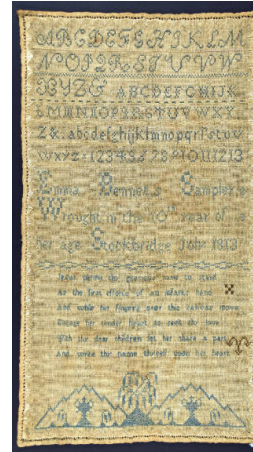 ABCDEFGHIJKLM
NOPQRSTUVW
XYZ& ABCDEFGHIJK
LMNOPQRSTUVWXY
Z&.abcdefghijklmnopqrſstuv
wxyz.12345 7891011213
Emma Bennets Sampler
Wrought in the 10th year of
her age Stockbridge July 1813
Jesus permit thy gracious name to stand
As the first efforts of an infants hand
And while her fingers oer this canvas move
Engage her tender heart to seek thy love
With thy dear children let her share a part
And write thy name thyself upon her heart